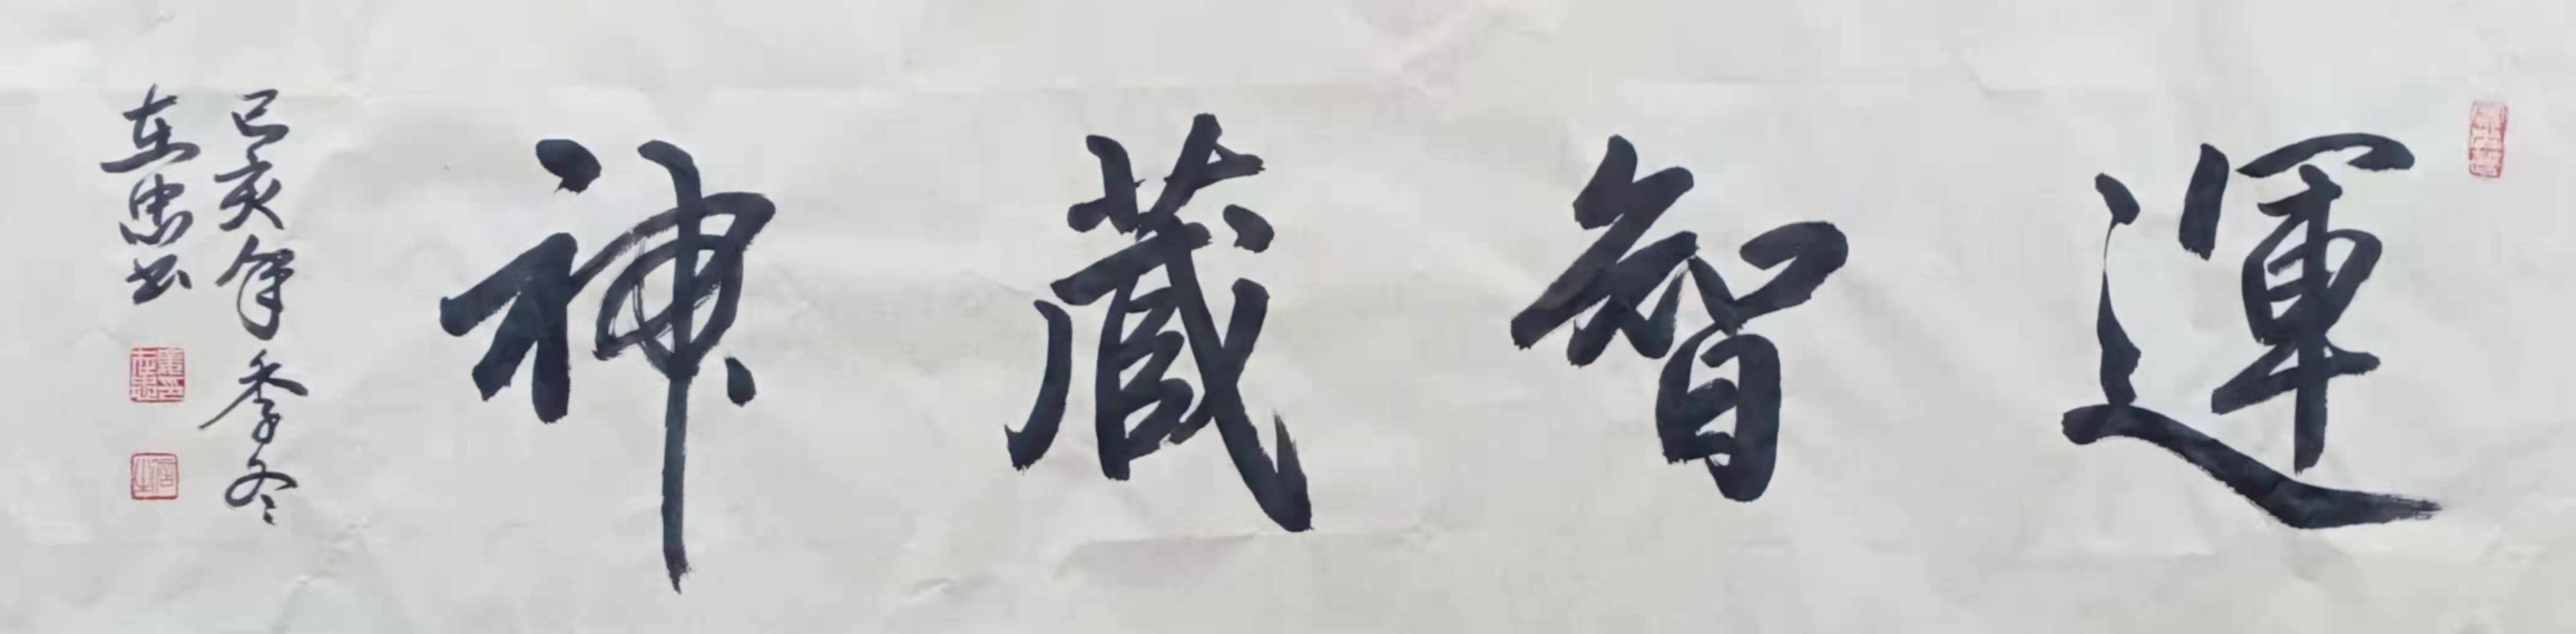 運智藏神
己亥年季冬
在忠书